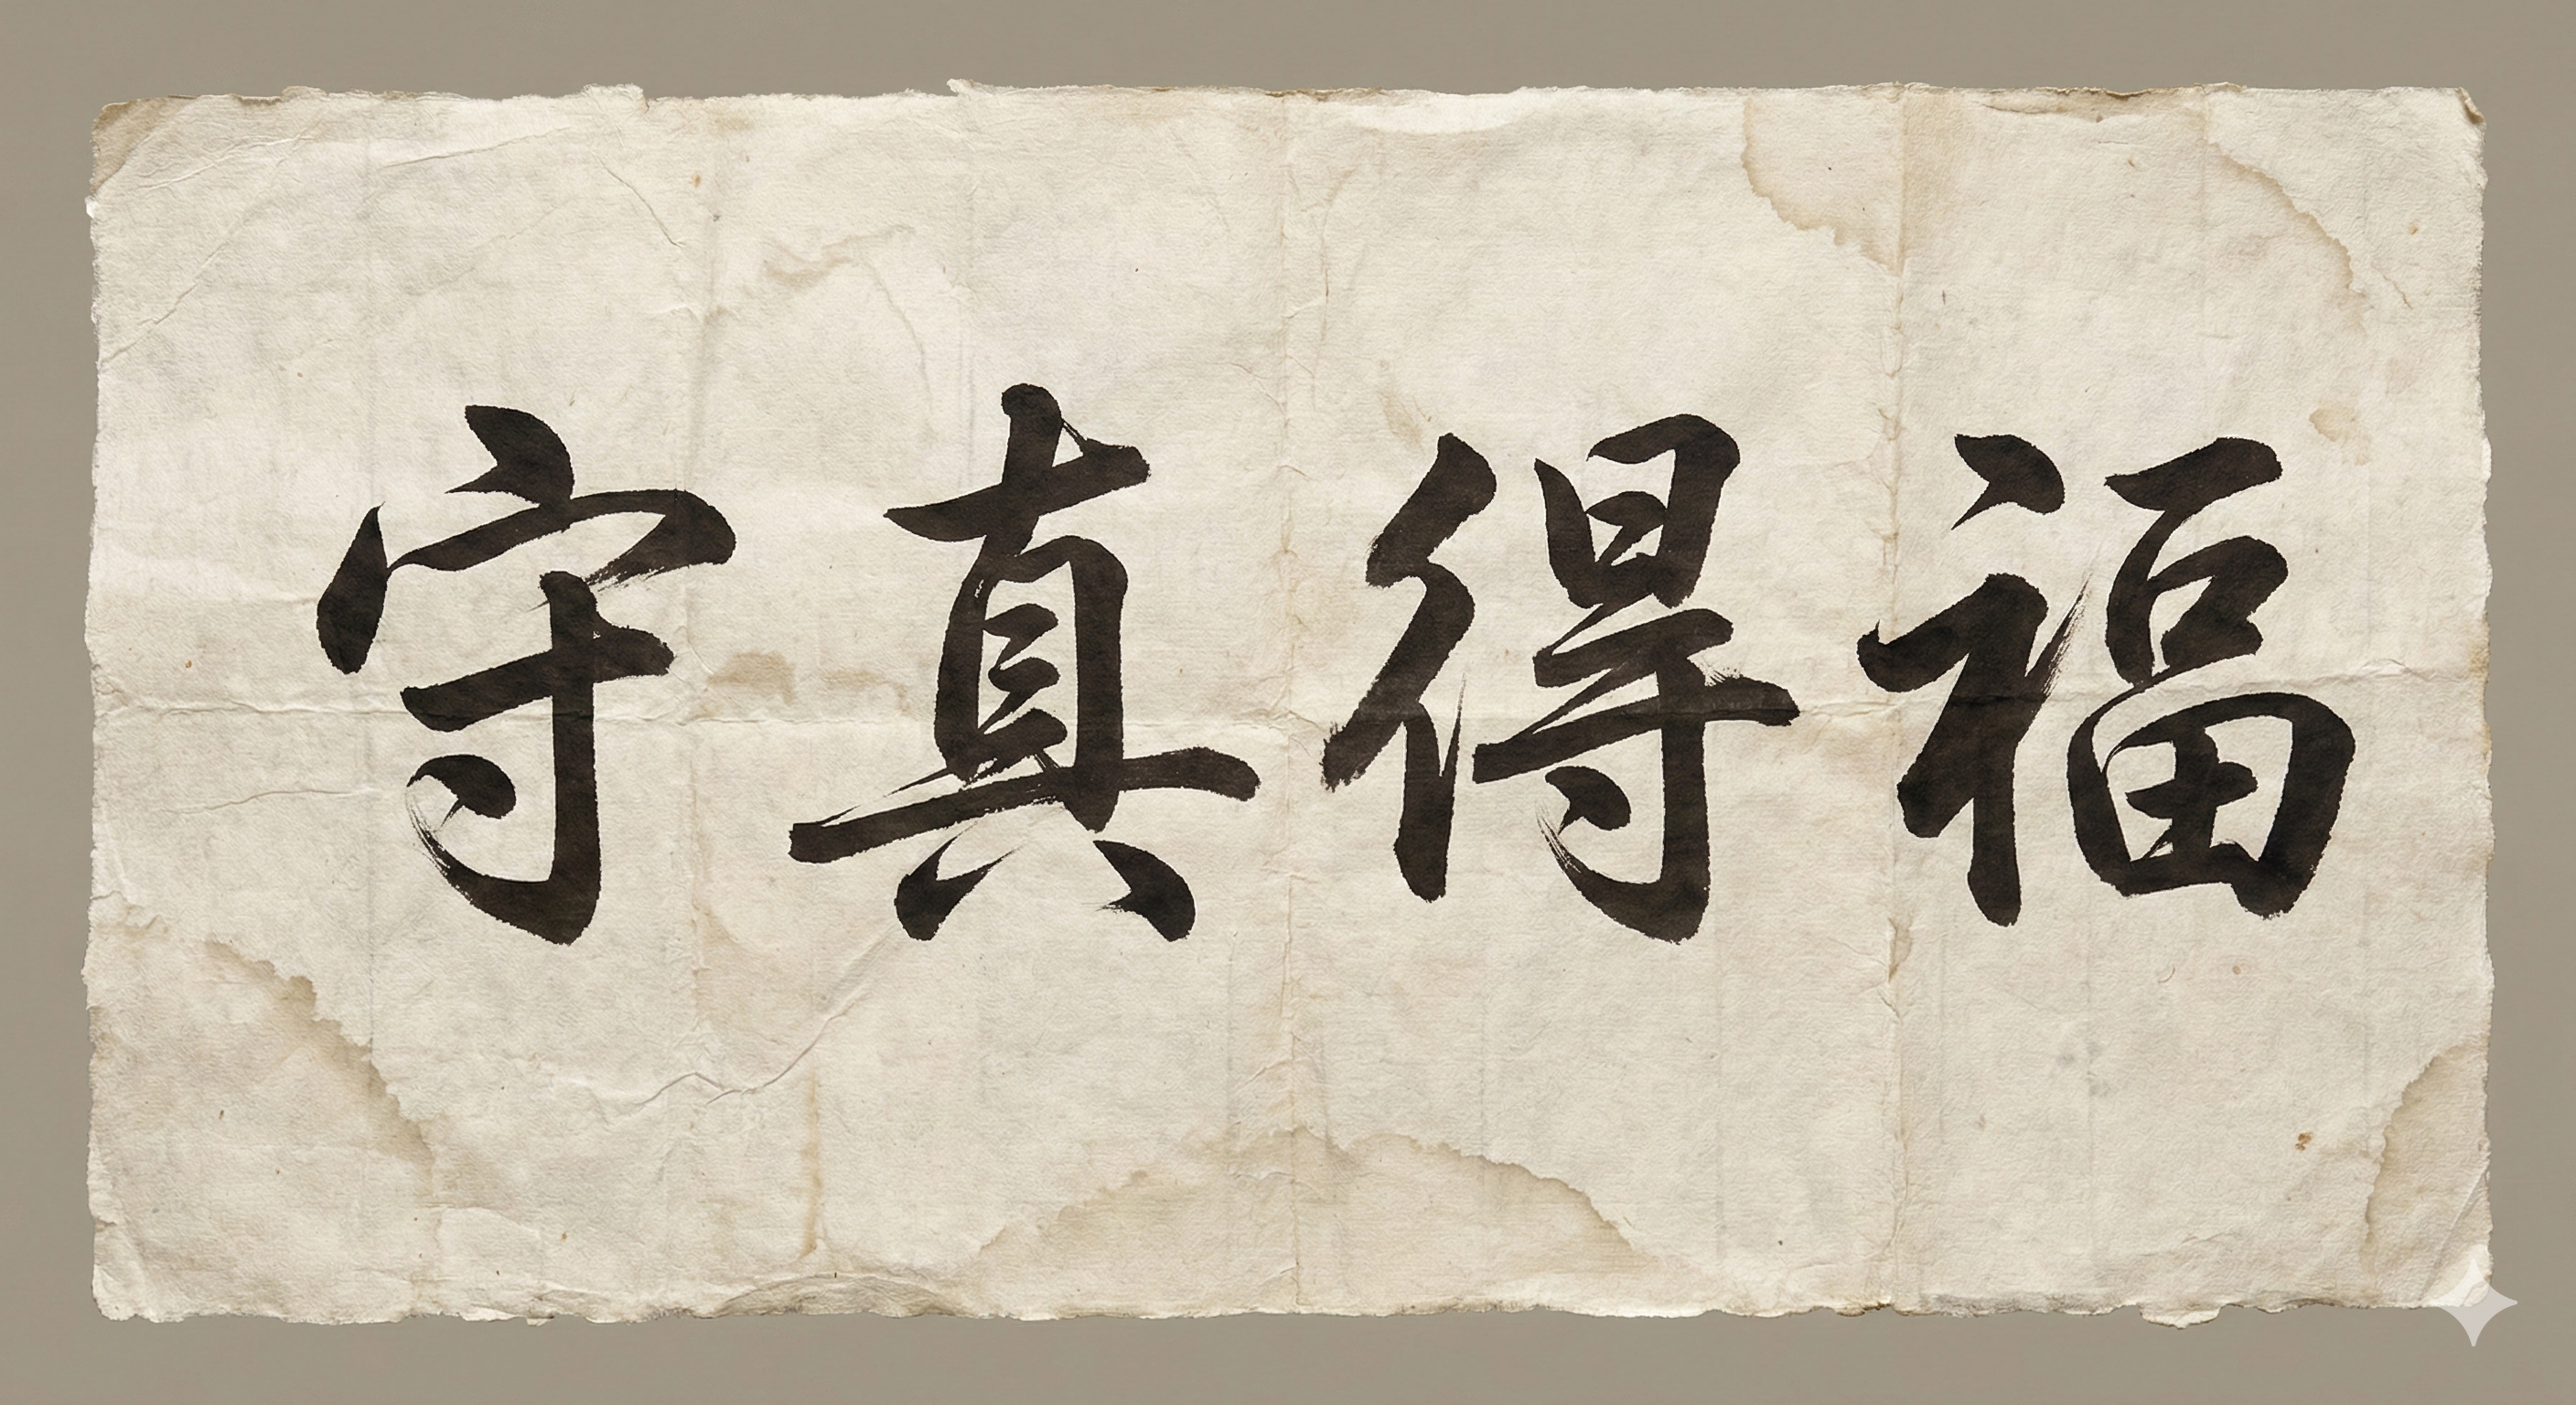 守真得福